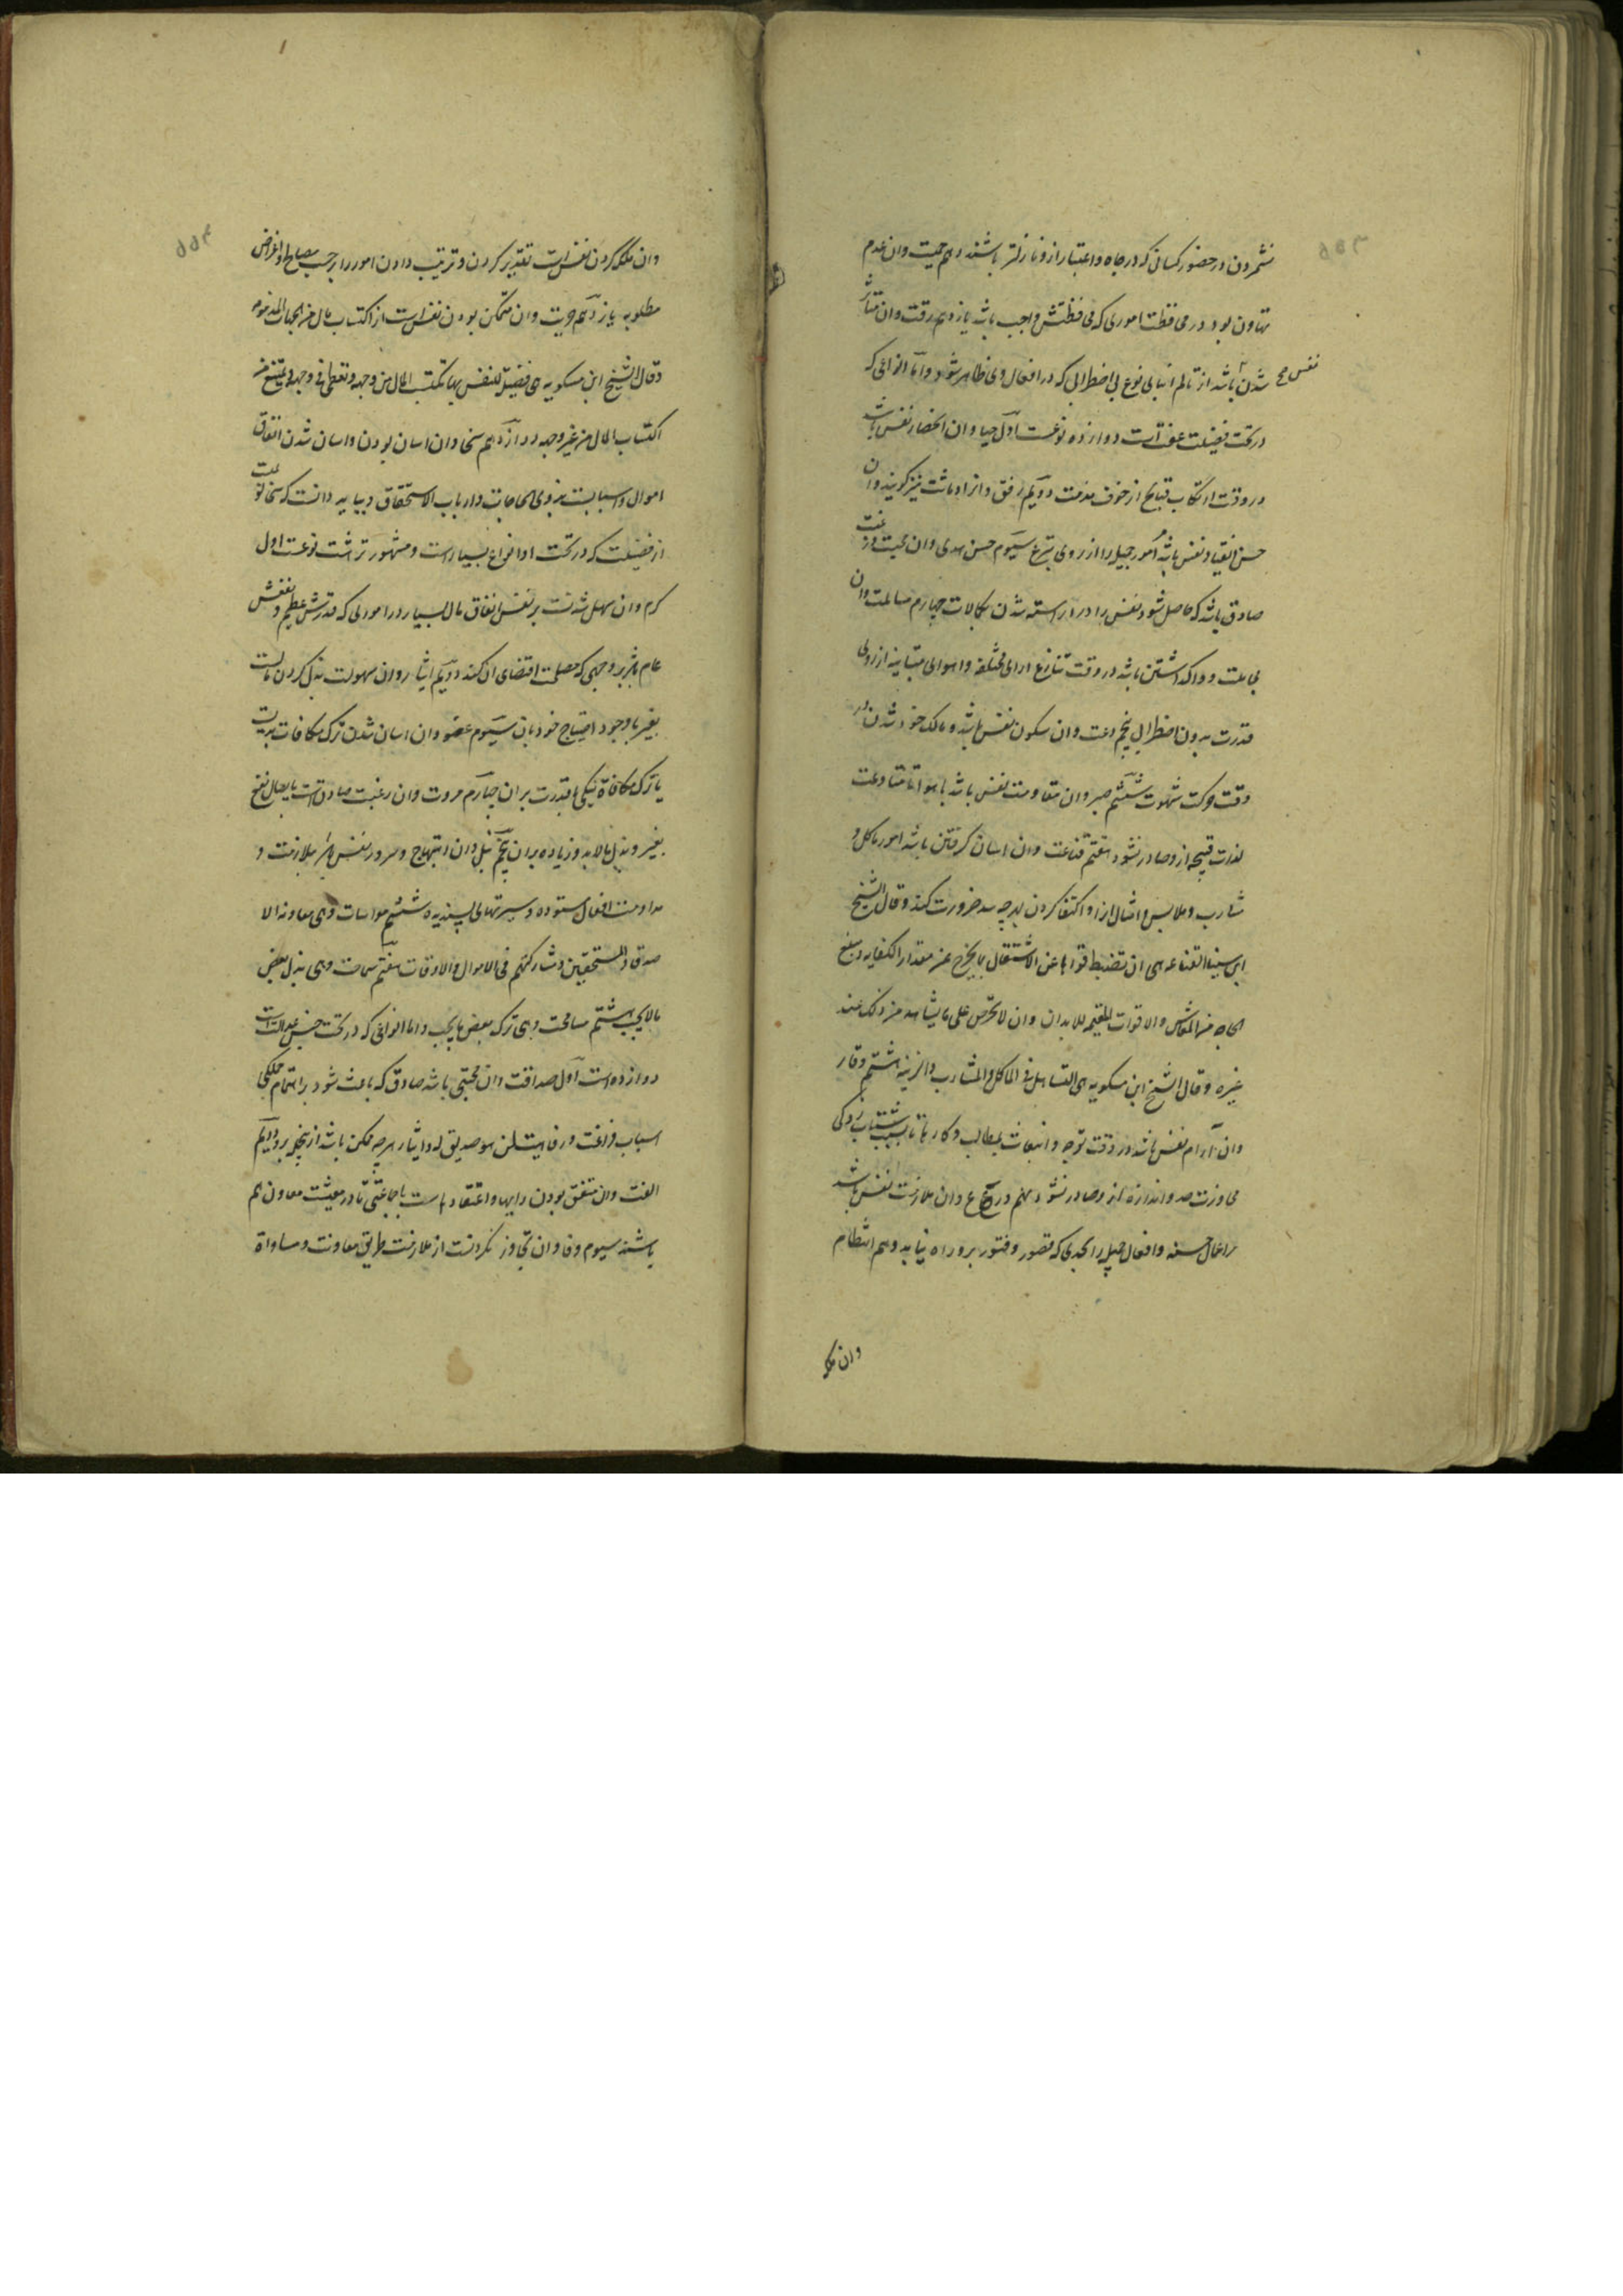 نشمردن در حضور کسانی که در جاه و اعتبار ازو نازلتر باشند دهم حمیت وان عدم
تهاون بود در محافظت اموری که محافظتش واجب باشد یازدهم رقت وان متأثر
شدن نفس باشد از تألم ابنای نوع بی اضطرابی که در افعال وی ظاهر شود و اما انواعی که
در تحت فضیلت عفت است دوازده نوعست اول حیا و ان انحصار نفس باشد
در وقت ارتکاب قبایح از خوف مذمت دویم رفق و انرا دماثت نیز گویند و ان
حسن انقیاد نفس باشد امور جمیل را از روی تبرع سیوم حسن هدی وان محبت و رغبت
صادق باشد که حاصل شود نفس را در اراسته شدن بکمالات چهارم مسالمت وان
مجاملت و واگذاشتن باشد در وقت تنازع ارای مختلفه و اهوای متباینه از روی
قدرت بدون اضطرابی پنجم دعت وان سکون نفس باشد و مالک خود شدن در
وقت حرکت شهوت ششم صبر وان مقاومت نفس باشد با هوا تا متاوعت
لذات قبیحه ازو صادر نشود هفتم قناعت وان اسان گرفتن باشد امور ماکل و
مشارب و ملابس و امثال انرا و اکتفا کردن بهر چه سد ضرورت کند و قال الشیخ
ابی سینا القناعه هی ان تضبط قواها عن الاشتغال بما یخرج عن مقدار الکفایه و مبلغ
الحاجه من المعاش والاقوات المقیمه للابدان وان لا تحرص علی ما یشاهد من ذلک عند
غیره و قال الشیخ ابن مسکویه هی التساهل فی الماکل والمشارب والزینه هشتم وقار
وان ارام نفس باشد در وقت توجه و انبعاث بمطالب و کارها تا بسبب شتاب زدگی
مجاوزت حد و اندازه ازو صادر نشود نهم ورع وان ملازمت نفس باشد
بر اعمال حسنه و افعال جمیله را بحدی که قصور و فتور برو راه نیابد دهم انتظام
وان ملکه
وان ملکه کردن نفس است تقدیر کردن و ترتیب دادن امور را بر حسب مصالح و اغراض
مطلوبه یازدهم حریت وان متمکن بودن نفس است از اکتساب مال من الجهات المذمومه
وقال الشیخ ابن مسکویه هی فضیلة للنفس بها تکتسب المال من وجهه وتعطی فی وجهه وتمتنع من
اکتساب المال من غیر وجهه دوازدهم سخا وان اسان بودن و اسان شدن انفاق
اموال و اسبابست بذوی الحاجات و ارباب الاستحقاق و بباید دانست که سخا نوعیست
از فضیلت که در تحت او انواع بسیار است و مشهورتر هشت نوعست اول
کرم وان سهل شدنست بر نفس انفاق مال بسیار در اموری که قدرش عظیم و نفعش
عام باشد بر وجهی که مصلحت اقتضای ان کند دویم ایثار وان سهولت بذل کردن مالست
بغیر با وجود احتیاج خود بان سیوم عفو وان اسان شدن ترک مکافات بدیست
یا ترک مکافاة نیکی با قدرت بران چهارم مروت وان رغبت صادق است بایصال نفع
بغیر و بذل مالابد و زیاده بران پنجم نبل وان ابتهاج و سرور نفس باشد بملازمت و
مداومت افعال ستوده و سیرتهای پسندیده ششم مواسات وهی معاونة الا
صدقاء والمستحقین ومشارکتهم فی الاموال والاوقات هفتم سماحت وهی بذل بعض
مالایجب هشتم مسامحت وهی ترک بعض مایجب و اما انواعی که در تحت جنس عدالت است
دوازده است اول صداقت وان محبتی باشد صادق که باعث شود بر اهتمام جملگی
اسباب فراغت و رفاهیت لمن هو صدیق له و ایثار هر چه ممکن باشد از خیر برو دویم
الفت وان متفق بودن رایها و اعتقادهاست با جماعتی تا در معیشت معاون هم
باشند سیوم وفا وان تجاوز نکردنست از ملازمت طریق معاونت و مساواة